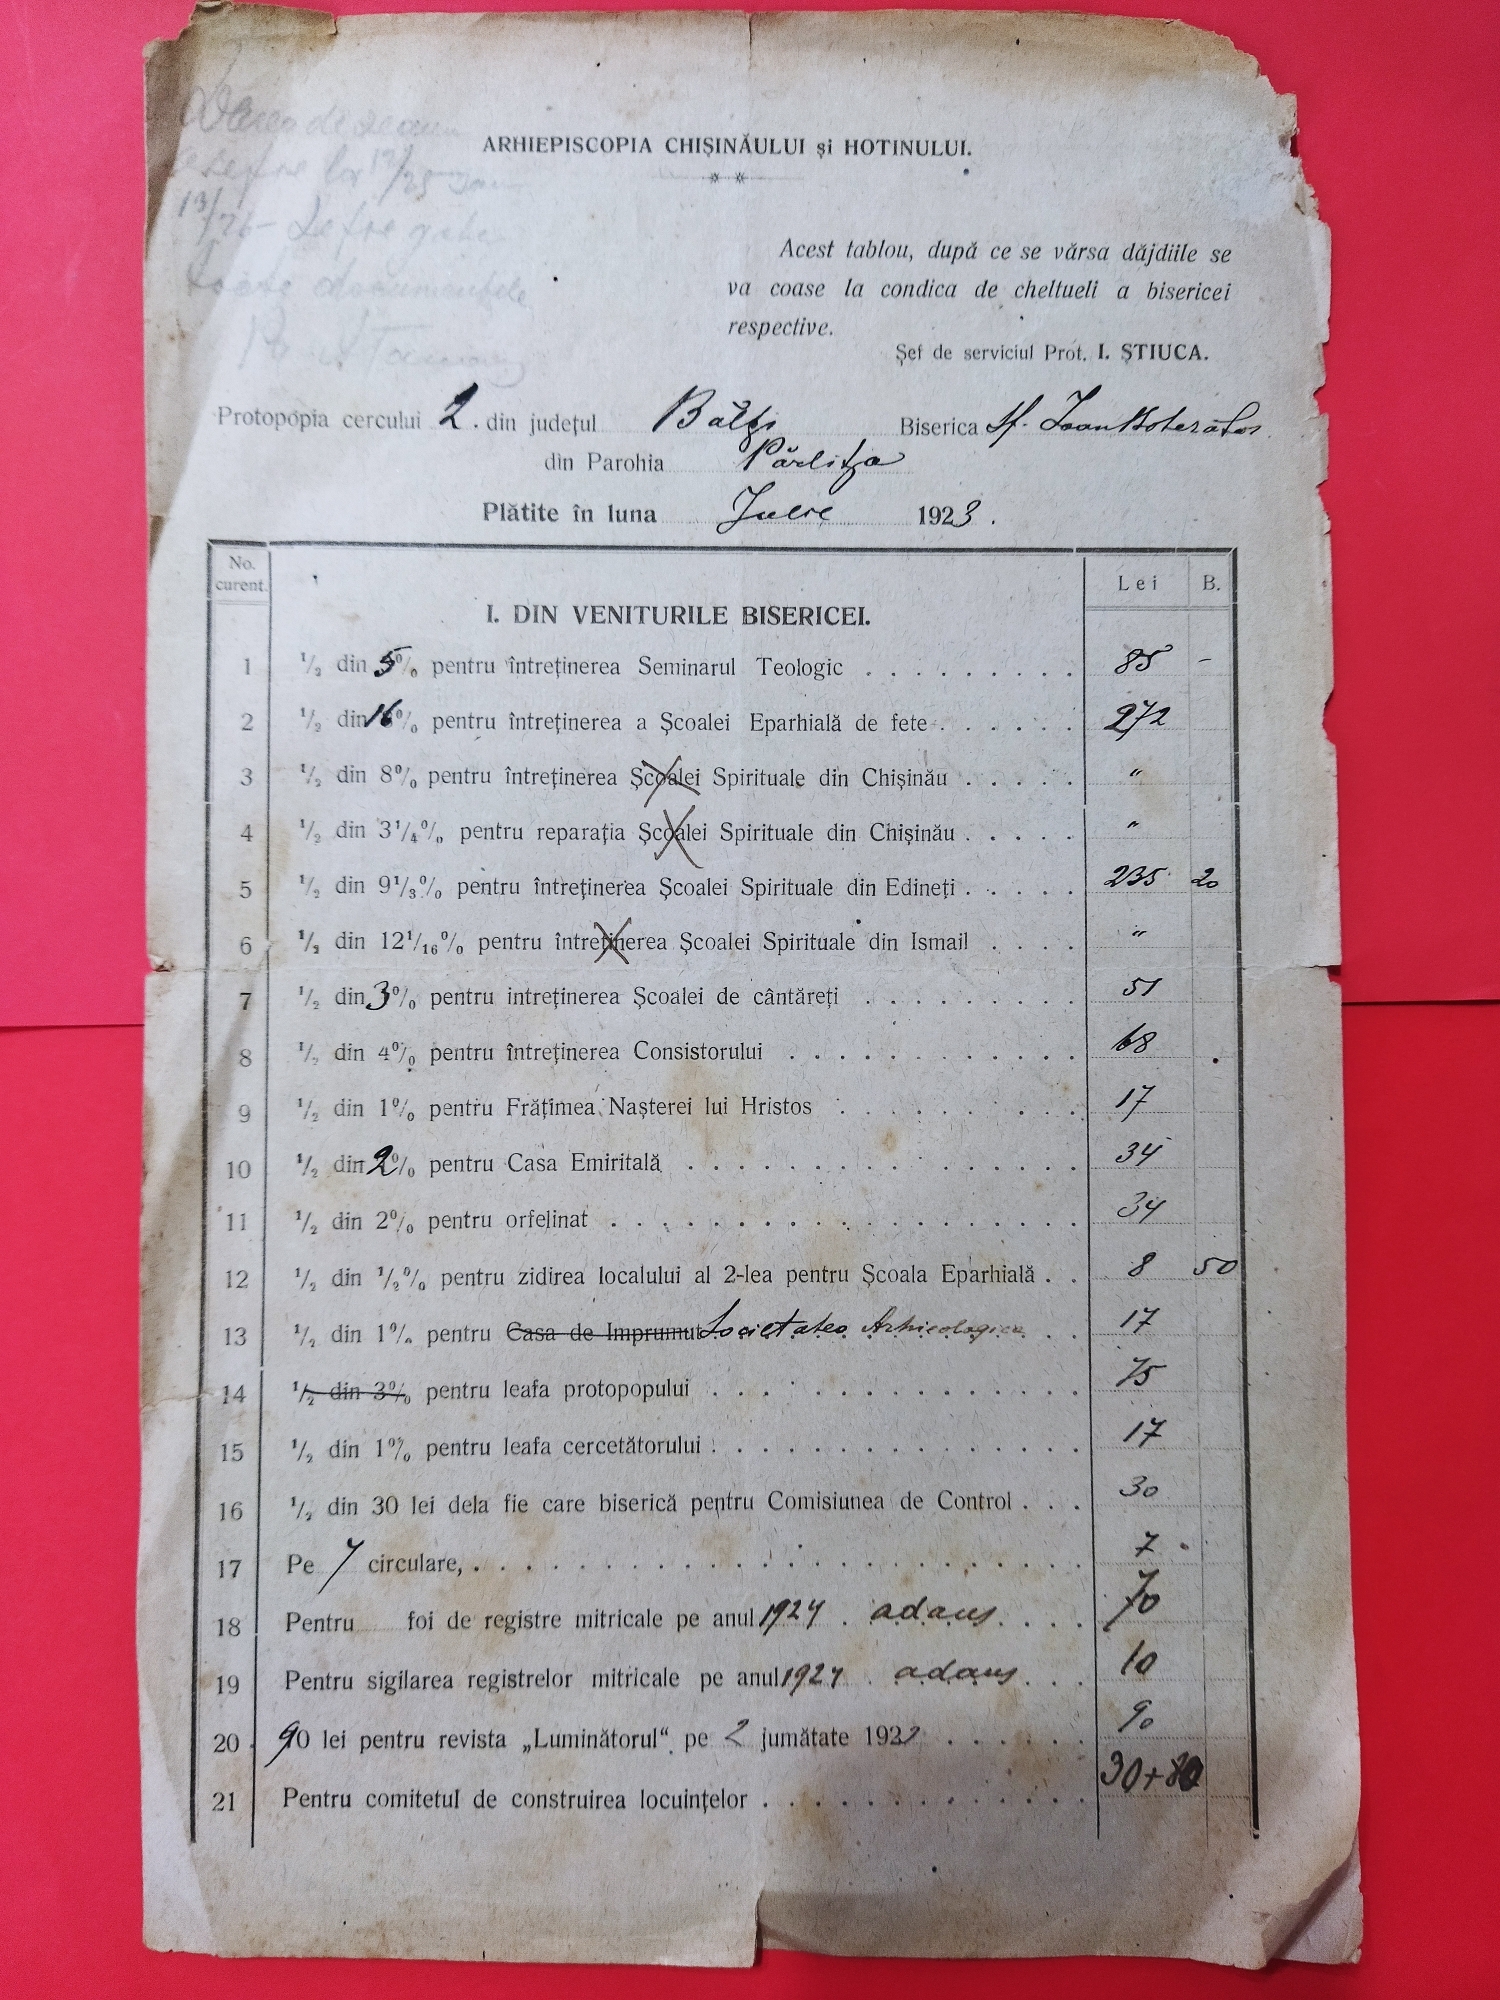 de
la 13/25
13/26
toate documentele
ARHIEPISCOPIA CHIȘINĂULUI și HOTINULUI.
Acest tablou, după ce se vărsa dăjdiile se
va coase la condica de cheltueli a bisericei
respective.
Șef de serviciul Prot. I. ȘTIUCA.
Protopopia cercului 2. din județul Bălți Biserica Sf. Ioan
din Parohia Pârlița
Plătite în luna Iulie 1923.
No. curent. Lei B.
I. DIN VENITURILE BISERICEI.
1 ½ din 5% pentru întreținerea Seminarul Teologic 85 –
2 ½ din 16% pentru întreținerea a Școalei Eparhială de fete 272
3 ½ din 8% pentru întreținerea Școalei Spirituale din Chișinău "
4 ½ din 3¼% pentru reparația Școalei Spirituale din Chișinău "
5 ½ din 9⅓% pentru întreținerea Școalei Spirituale din Edineți 235 20
6 ½ din 12 1/16% pentru întreținerea Școalei Spirituale din Ismail "
7 ½ din 3% pentru intreținerea Școalei de cântăreți 51
8 ½ din 4% pentru întreținerea Consistorului 68
9 ½ din 1% pentru Frățimea Nașterei lui Hristos 17
10 ½ din 2% pentru Casa Emiritală 34
11 ½ din 2% pentru orfelinat 34
12 ½ din ½% pentru zidirea localului al 2-lea pentru Școala Eparhială 8 50
13 ½ din 1% pentru Casa de Imprumut Societatea Arhiologica 17
14 ½ din 3% pentru leafa protopopului 75
15 ½ din 1% pentru leafa cercetătorului 17
16 ½ din 30 lei dela fie care biserică pentru Comisiunea de Control 30
17 Pe 7 circulare, 7
18 Pentru foi de registre mitricale pe anul 1924 adaus 70
19 Pentru sigilarea registrelor mitricale pe anul 1924 adaus 10
20 90 lei pentru revista „Luminătorul“ pe 2 jumătate 192 90
21 Pentru comitetul de construirea locuințelor 30+